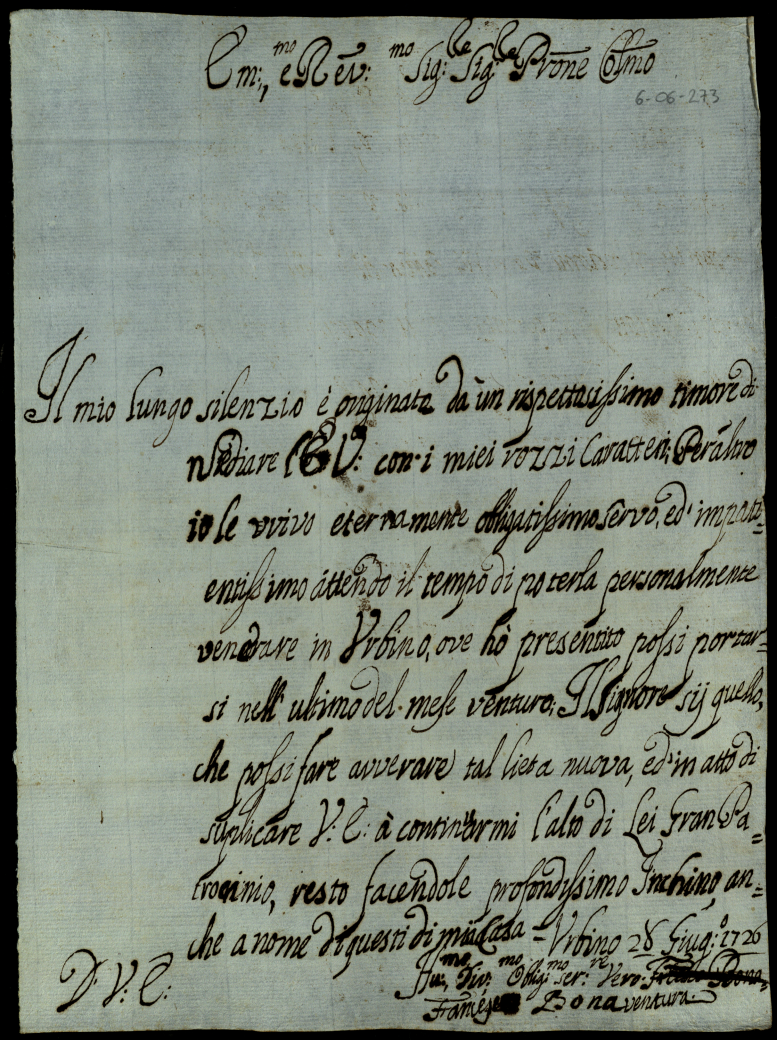 Em:mo, e Rev:mo Sig:re Sig:re Prone Colmo
6-06-273
Il mio lungo silenzio è originata da un rispettasissimo timore di
l'E V: con i miei rozzi Caratteri; Peraltro
io le vvivo eternamente obligatissimo servo, ed' impati=
entissimo attendo il tempo di poterla personalmente
venerare in Vrbino, ove hò presentito possi portar=
si nell' ultimo del mese venturo; Il Signore sij quello,
che possi fare avverare tal lieta nuova, ed' in atto di
suplicare V: E: à continuarmi l'alto di Lei Gran Pa=
trocinio, resto facendole profondissimo Inchino, an=
che a nome di questi di mia Casa = Vrbino 28 Giug:o 1726
D: V: E:
Hu:mo, Div:mo Oblig:mo ser:re Vero:
Bonaventura